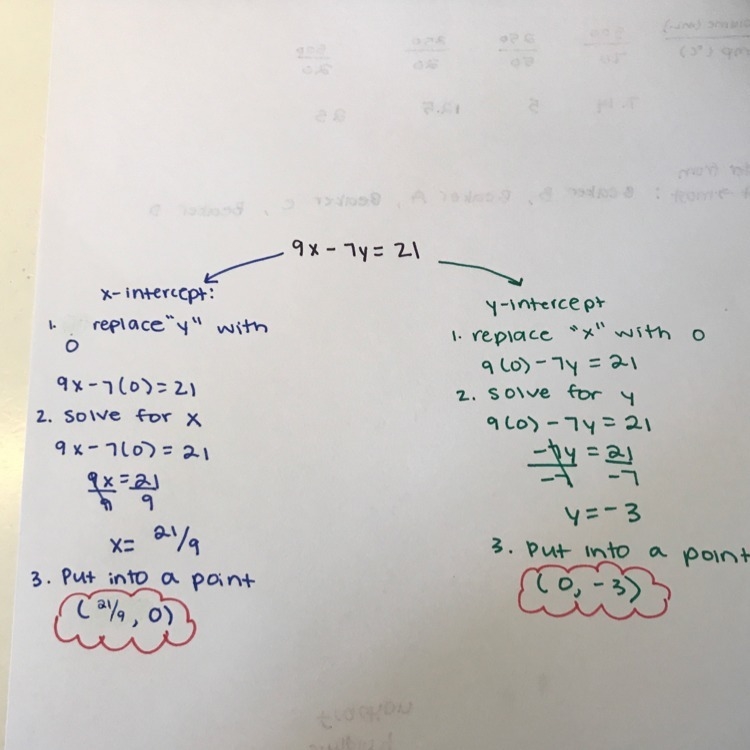 9x - 7y = 21
x-intercept:
1. replace "y" with
0
9x - 7(0) = 21
2. solve for x
9x - 7(0) = 21
9x = 21
9 9
x = 21/9
3. Put into a point
(21/9, 0)
y-intercept
1. replace "x" with 0
9(0) - 7y = 21
2. solve for y
9(0) - 7y = 21
-7y = 21
-7 -7
y = -3
3. Put into a point
(0, -3)